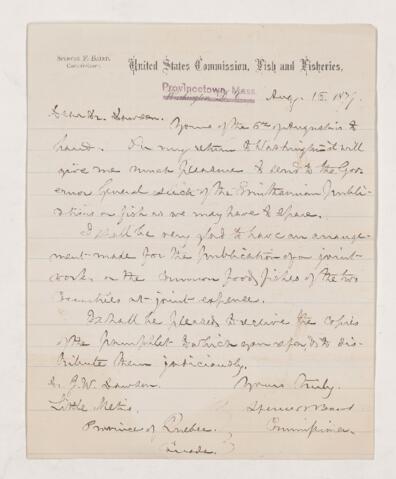 Spencer F. Baird,
Commissioner.
United States Commission, Fish and Fisheries,
Provincetown, Mass.
Washington, D. C.
Aug. 15, 1879.
Dear Dr. Dawson.
Yours of the 5th of August is to
hand. On my return to Washington it will
give me much pleasure to send to the Gov-
ernor General such of the Smithsonian Publi-
cations on fish as we may have to spare.
I shall be very glad to have an arrange-
ment made for the publication of a joint
work on the common food fishes of the two
Countries at joint expense.
I shall be pleased to receive the copies
of the pamphlet to which you refer & to dis-
tribute them judiciously.
Dr. J. W. Dawson. Yours truly,
Little Metis, Spencer F Baird
Province of Quebec. Commissioner.
Canada.